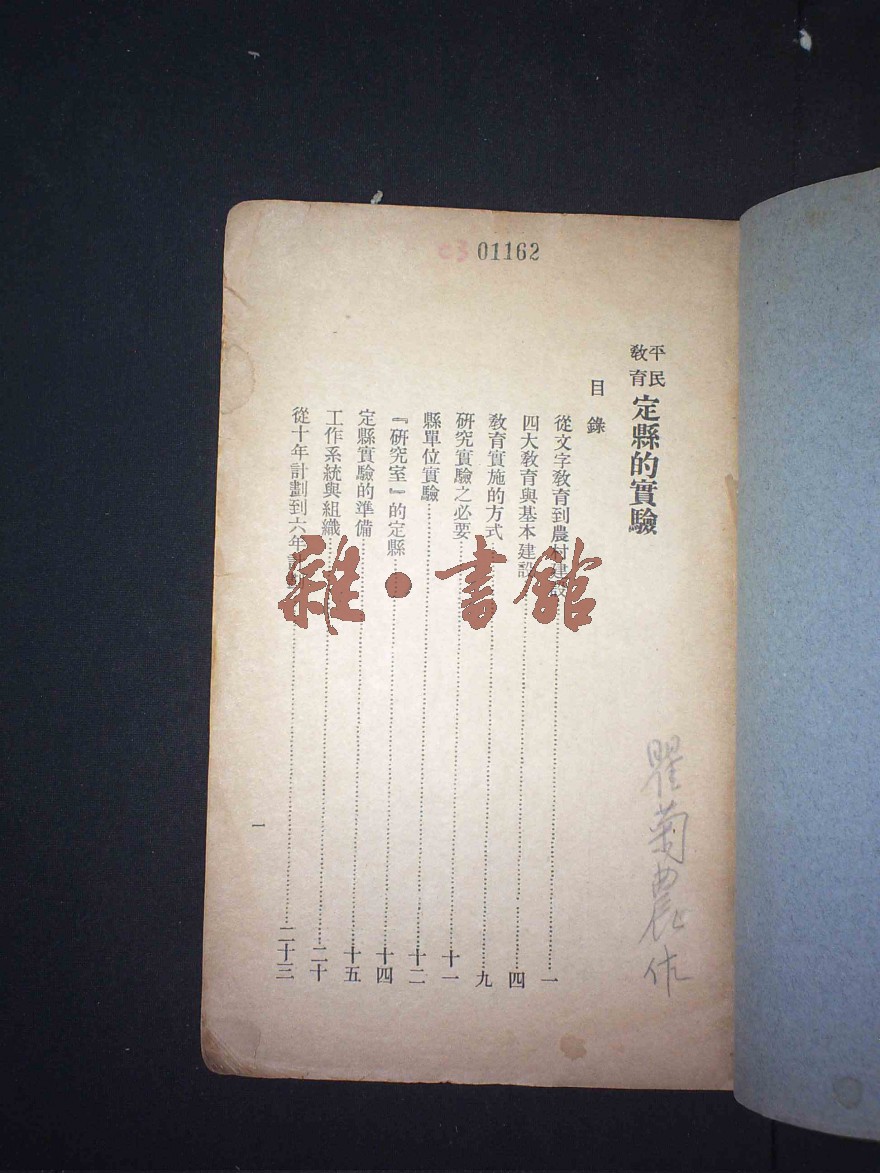 e3 01162
平民教育 定縣的實驗
目錄
從文字教育到農村建設……一
四大教育與基本建設……四
教育實施的方式……九
研究實驗之必要……十一
縣單位實驗……十二
『研究室』的定縣……十四
定縣實驗的準備……十五
工作系統與組織……二十
從十年計劃到六年計劃……二十三
一
瞿菊農作
雜·書館